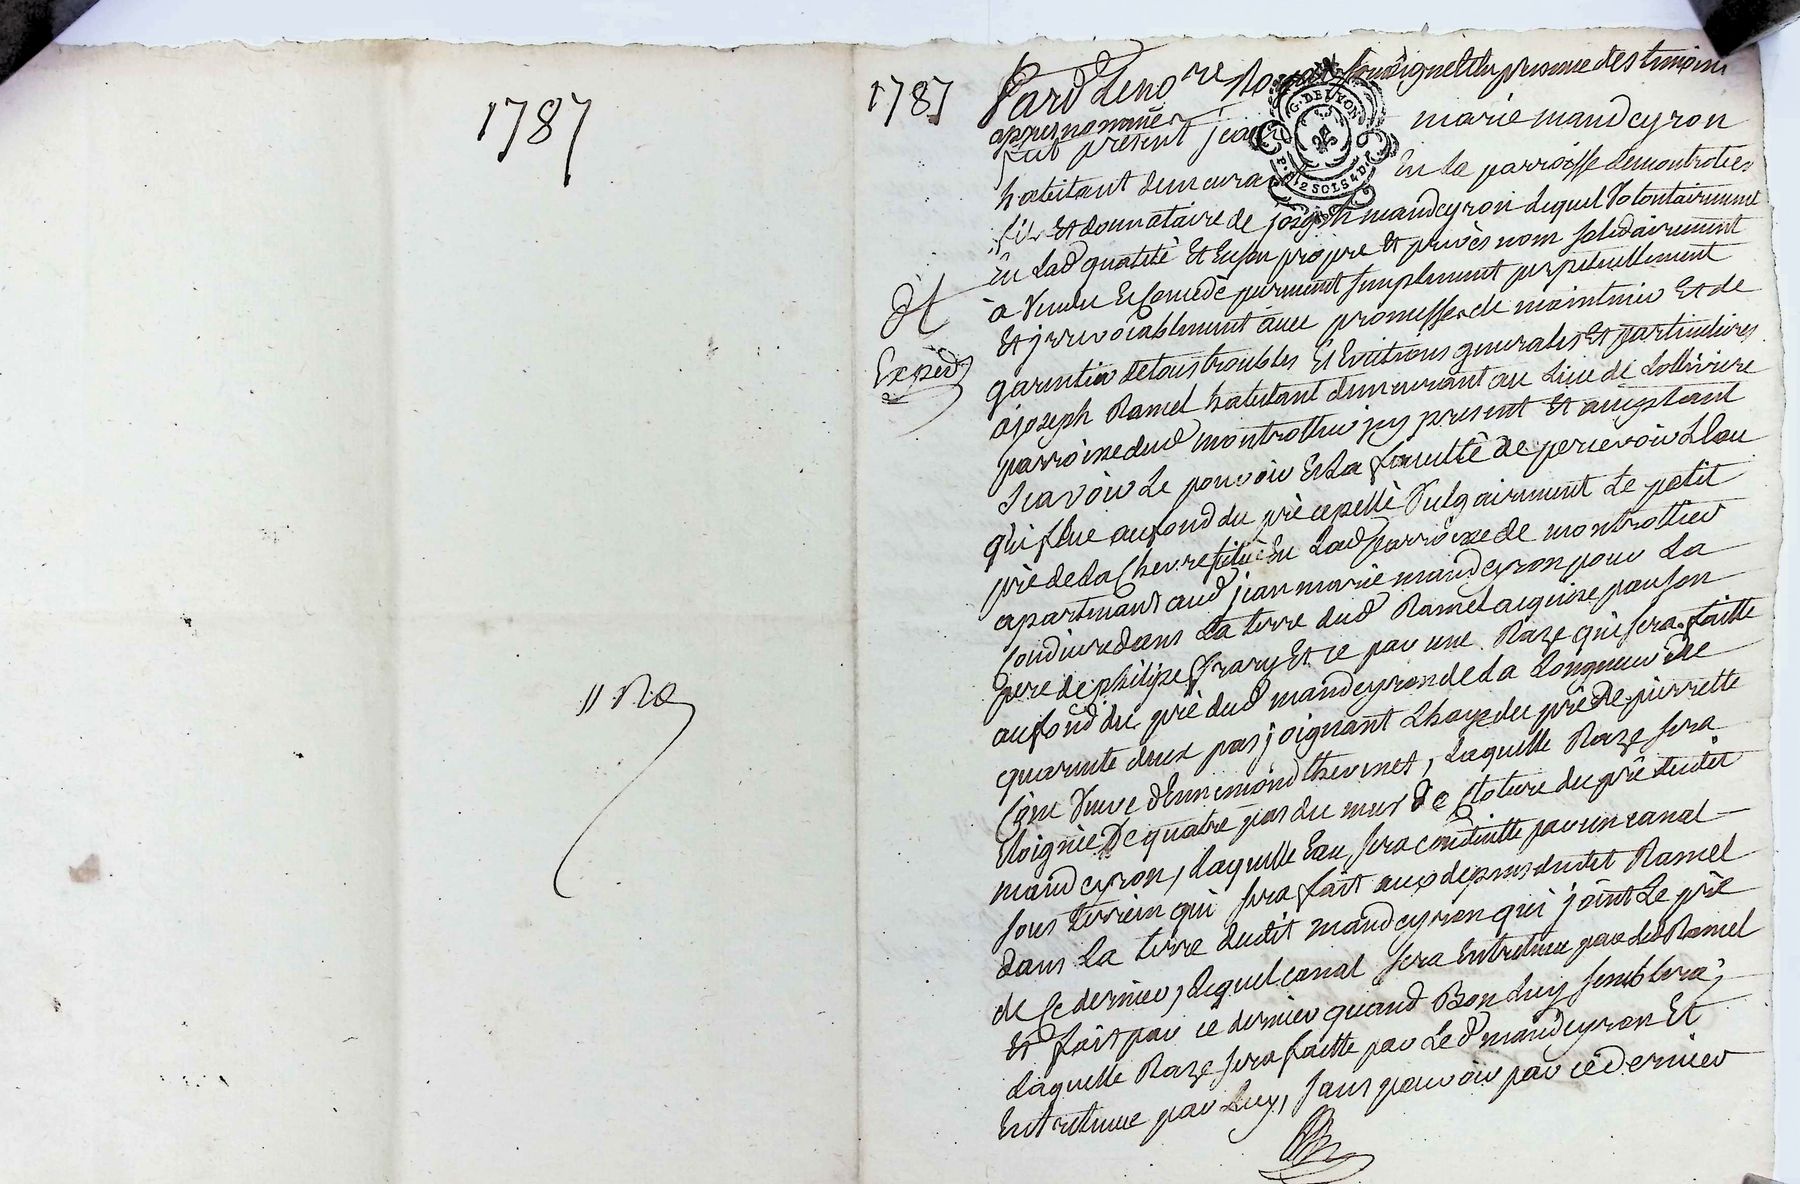 1787
11 No
1787
Pard. Le no.re Royal soussigné Et En presence des temoins
apres nommés
fut present jean marie mandeyron
habitant demeurant En la parroisse de montrotier
fils Et donnataire de joseph mandeyron Lequel Volontairement
En Lad. qualité Et En son propre Et privés nom solidairement
à Vendu Et Concedé purement simplement perpetuellement
Et jrrevocablement avec promesse de maintenir Et de
garentir de tous troubles Et Evictions generales Et particulieres
Expéd
à joseph Ramel habitant demeurant au Lieu de
parroisse dud. montrottier jcy present Et acceptant
scavoir Le pouvoir Et La faculté de percevoir L'Eau
qui flue au fond du pré appellé Vulgairement Le petit
pré de La Chevre situé En Lad. parroisse de montrottier
apartenant aud. jean marie mandeyron pour La
Conduire dans La terre dud. Ramel acquise par son
pere de philipe frary Et ce par une Raze qui sera faitte
au fond du pré dud. mandeyron de La Longueur de
quarante deux pas joignant L'haye du pré de pierrette
Veuve d'Ennemond thevenet, Laquelle Raze sera
Eloignée De quatre pas du mur de Cloture du pré dudit
mandeyron, Laquelle Eau sera conduitte par un canal
sous terrein qui sera fait aux depens dudit Ramel
dans La terre dudit mandeyron qui joint Le pré
de Ce dernier, Lequel canal sera Entretenu par led. Ramel
Et fait par ce dernier quand Bon Luy semblera,
Laquelle Raze sera faitte par Led. mandeyron Et
Entretenue par Luy, sans pouvoir par ce dernier
G. DE LYON
2 SOLS 4 D.